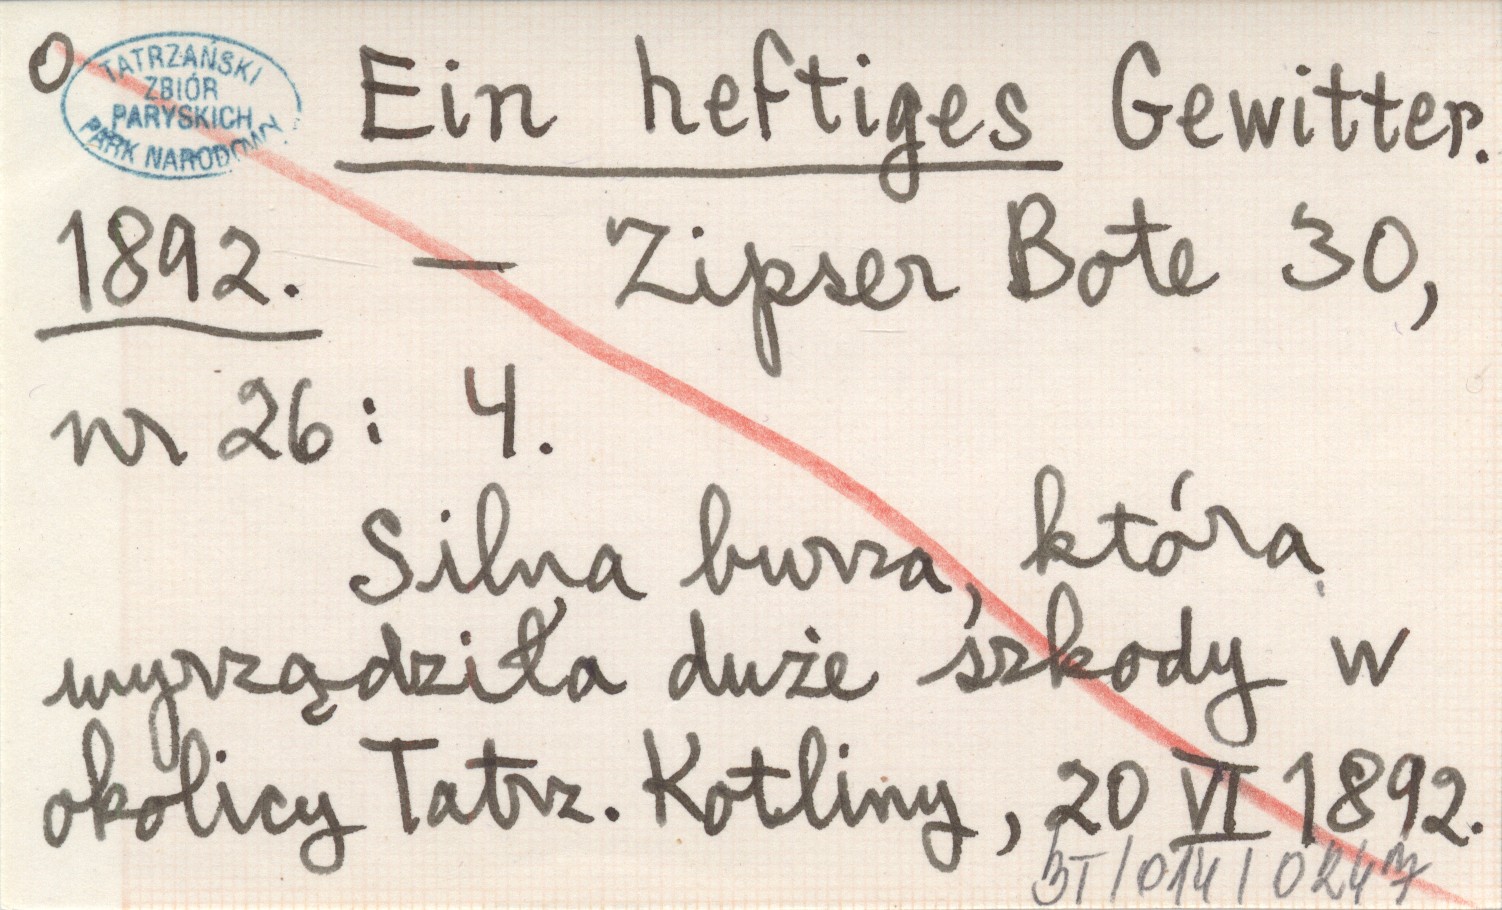 O
TATRZAŃSKI
ZBIÓR
PARYSKICH
PARK NARODOWY
Ein heftiges Gewitter.
1892. — Zipser Bote 30,
nr 26: 4.
Silna burza, która
wyrządziła duże szkody w
okolicy Tatrz. Kotliny, 20 VI 1892.
BT/014/0247